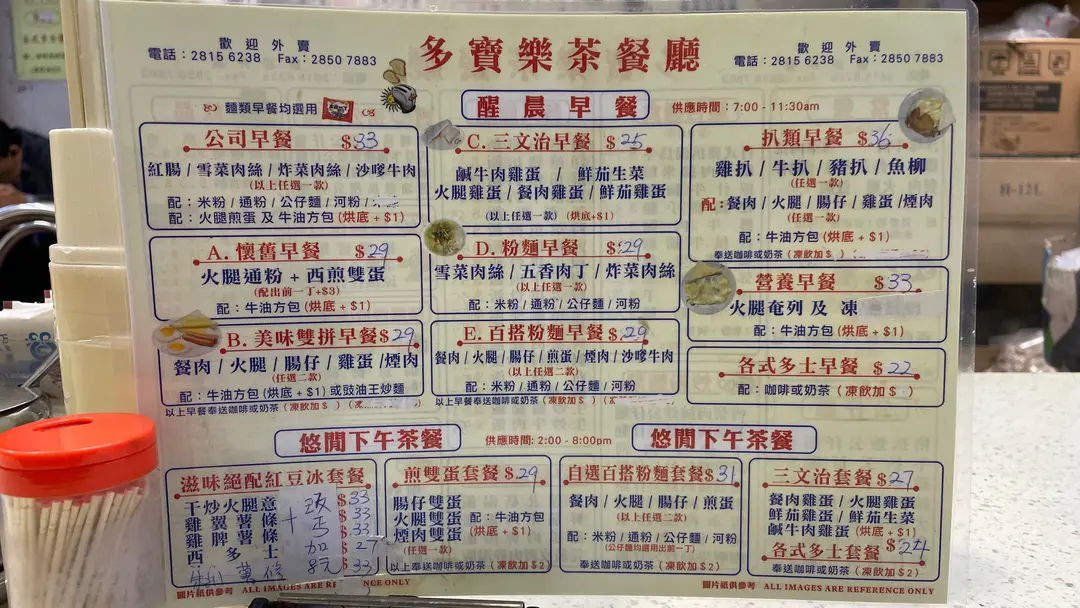 歡迎外賣
電話：2815 6238 Fax：2850 7883
多寶樂茶餐廳
歡迎外賣
電話：2815 6238 Fax：2850 7883
麵類早餐均選用
醒晨早餐
供應時間：7:00 - 11:30am
公司早餐 $33
紅腸 / 雪菜肉絲 / 炸菜肉絲 / 沙嗲牛肉
(以上任選一款)
配：米粉 / 通粉 / 公仔麵 / 河粉
配：火腿煎蛋 及 牛油方包 (烘底 + $1)
A. 懷舊早餐 $29
火腿通粉 + 西煎雙蛋
(配出前一丁+$3)
配：牛油方包 (烘底 + $1)
B. 美味雙拼早餐 $29
餐肉 / 火腿 / 腸仔 / 雞蛋 / 煙肉
(任選二款)
配：牛油方包 (烘底 + $1) 或豉油王炒麵
以上早餐奉送咖啡或奶茶 (凍飲加 $ )
C. 三文治早餐 $25
鹹牛肉雞蛋 / 鮮茄生菜
火腿雞蛋 / 餐肉雞蛋 / 鮮茄雞蛋
(以上任選一款) (烘底+$1)
D. 粉麵早餐 $29
雪菜肉絲 / 五香肉丁 / 炸菜肉絲
配：米粉 / 通粉 / 公仔麵 / 河粉
E. 百搭粉麵早餐 $29
餐肉 / 火腿 / 腸仔 / 煎蛋 / 煙肉 / 沙嗲牛肉
(以上任選二款)
配：米粉 / 通粉 / 公仔麵 / 河粉
以上早餐奉送咖啡或奶茶 (凍飲加 $ )
扒類早餐 $36
雞扒 / 牛扒 / 豬扒 / 魚柳
(任選一款)
配：餐肉 / 火腿 / 腸仔 / 雞蛋 / 煙肉
(任選一款)
配：牛油方包 (烘底 + $1)
奉送咖啡或奶茶 (凍飲加 $
營養早餐 $33
火腿奄列 及 凍
配：牛油方包 (烘底 + $1)
各式多士早餐 $22
配：咖啡或奶茶 (凍飲加 $ )
悠閒下午茶餐
供應時間: 2:00 - 8:00pm
悠閒下午茶餐
滋味絕配紅豆冰套餐
干炒火腿意 $33
雞翼薯條 $33
雞脾薯條 $33
西多士 $27
$33
加
8元
煎雙蛋套餐 $29
腸仔雙蛋
火腿雙蛋
煙肉雙蛋
配：牛油方包
(烘底 + $1)
(任選一款)
以上奉送咖啡或奶茶 (凍飲加 $2)
自選百搭粉麵套餐 $31
餐肉 / 火腿 / 腸仔 / 煎蛋
(以上任選二款)
配：米粉 / 通粉 / 公仔麵 / 河粉
(公仔麵均選用出前一丁)
奉送咖啡或奶茶 (凍飲加 $2)
三文治套餐 $27
餐肉雞蛋 / 火腿雞蛋
鮮茄雞蛋 / 鮮茄生菜
鹹牛肉雞蛋 (烘底 + $1)
各式多士套餐 $24
奉送咖啡或奶茶 (凍飲加 $2)
圖片祇供參考 ALL IMAGES ARE REFERENCE ONLY
圖片祇供參考 ALL IMAGES ARE REFERENCE ONLY